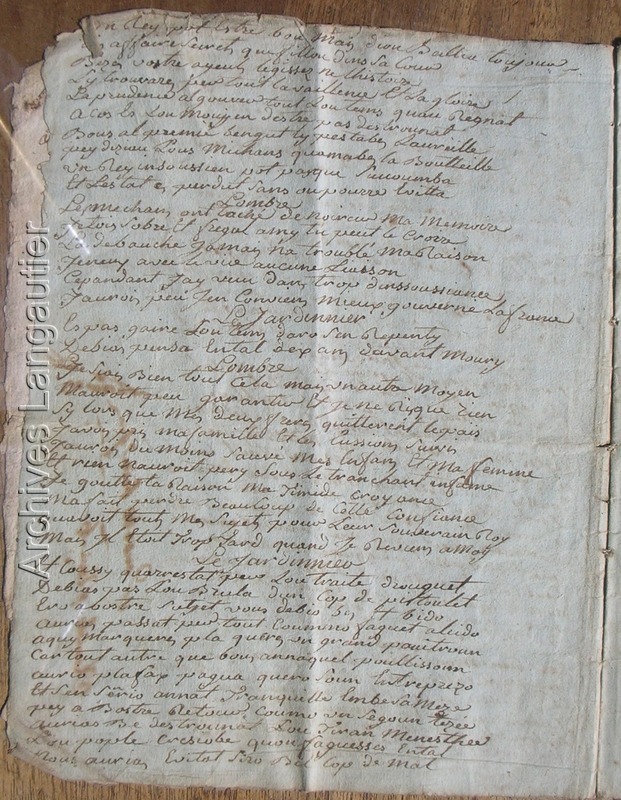 un Rey pot Estre bou mais diou Beilla toujour
Es affaire Secret que fillou dins sa Cour
Bizes vostre ayeul legissez su lhistoire
Ly trouvarez peu tout la vaillence Et la gloire
La prudence al gouver tout Lou tems quau Regnat
Aco Es Lou Mouyen destre pas destrounat
Bous al premie bengut ly prestabes Laureille
pey disiou Lous Michans quamabes la Bouteille
un Rey insoussien pot parque sucoumba
Et Lestat es perdut Sans ou pourre Evitta
Lombre
Les mechans ont tache de noircir Ma Memoire
Jetois Sobre Et fregal amy tu peut le Croire
La debauche Jamais na troublé Ma Raison
Je neux avec le vice aucune Liaison
Cepandant Jay vecu dans trop dinssoussiance
Jaurois peu Jen Conviens Mieux gouverne La france
Le Jardinnier
Es pas gaire Lou tems daro sen Repenty
Debias pensa Ental dex ans davant Moury
Lombre
Je Scais Bien tout Cela mais un autre Moyen
Mauroit peu garantir Et je ne Risque rien
Sy lors que Mes deux freres quitterent le pais
Javois pris ma famille Et les Eussions Suivis
Jaurois du Moins Sauvé Mes Enfans Et Ma femme
Et rien nauroit pery Sous Le tranchant infame
Je goutte la Raison Ma timide Croyance
Ma fait perdre Beaucoup de Cette Confiance
quavoit tous Mes Sujets pour Leur Souverain Roy
Mais Il Etoit Trop Tard quand Je Reviens a Moy
Le Jardinnier
Et Coussy quarrestat peu Lou traite drouquet
Debias pas Lou Brula dun Cop de pistoulet
Ero a bostre Sutget vous debio Sa bido
aurias passat peu tout Coummo faguet alido
aquy Marqueres pla queres un grand pouïtroun
Car tout autre que bous annaquel poulissoun
aurio pla fax pagua quero soun Entreprizo
Et Sen Sério annat Tranquille Embe sa Mezo
pey a Bostre Retour Coumo un Segoun tezée
aurias Be destrounat Lou tiran Menesthée
Lou pople Cresiobe quou faguesses Ental
Nous aurias Evitat Siro Bel Cop de Mal
Archives Langautier